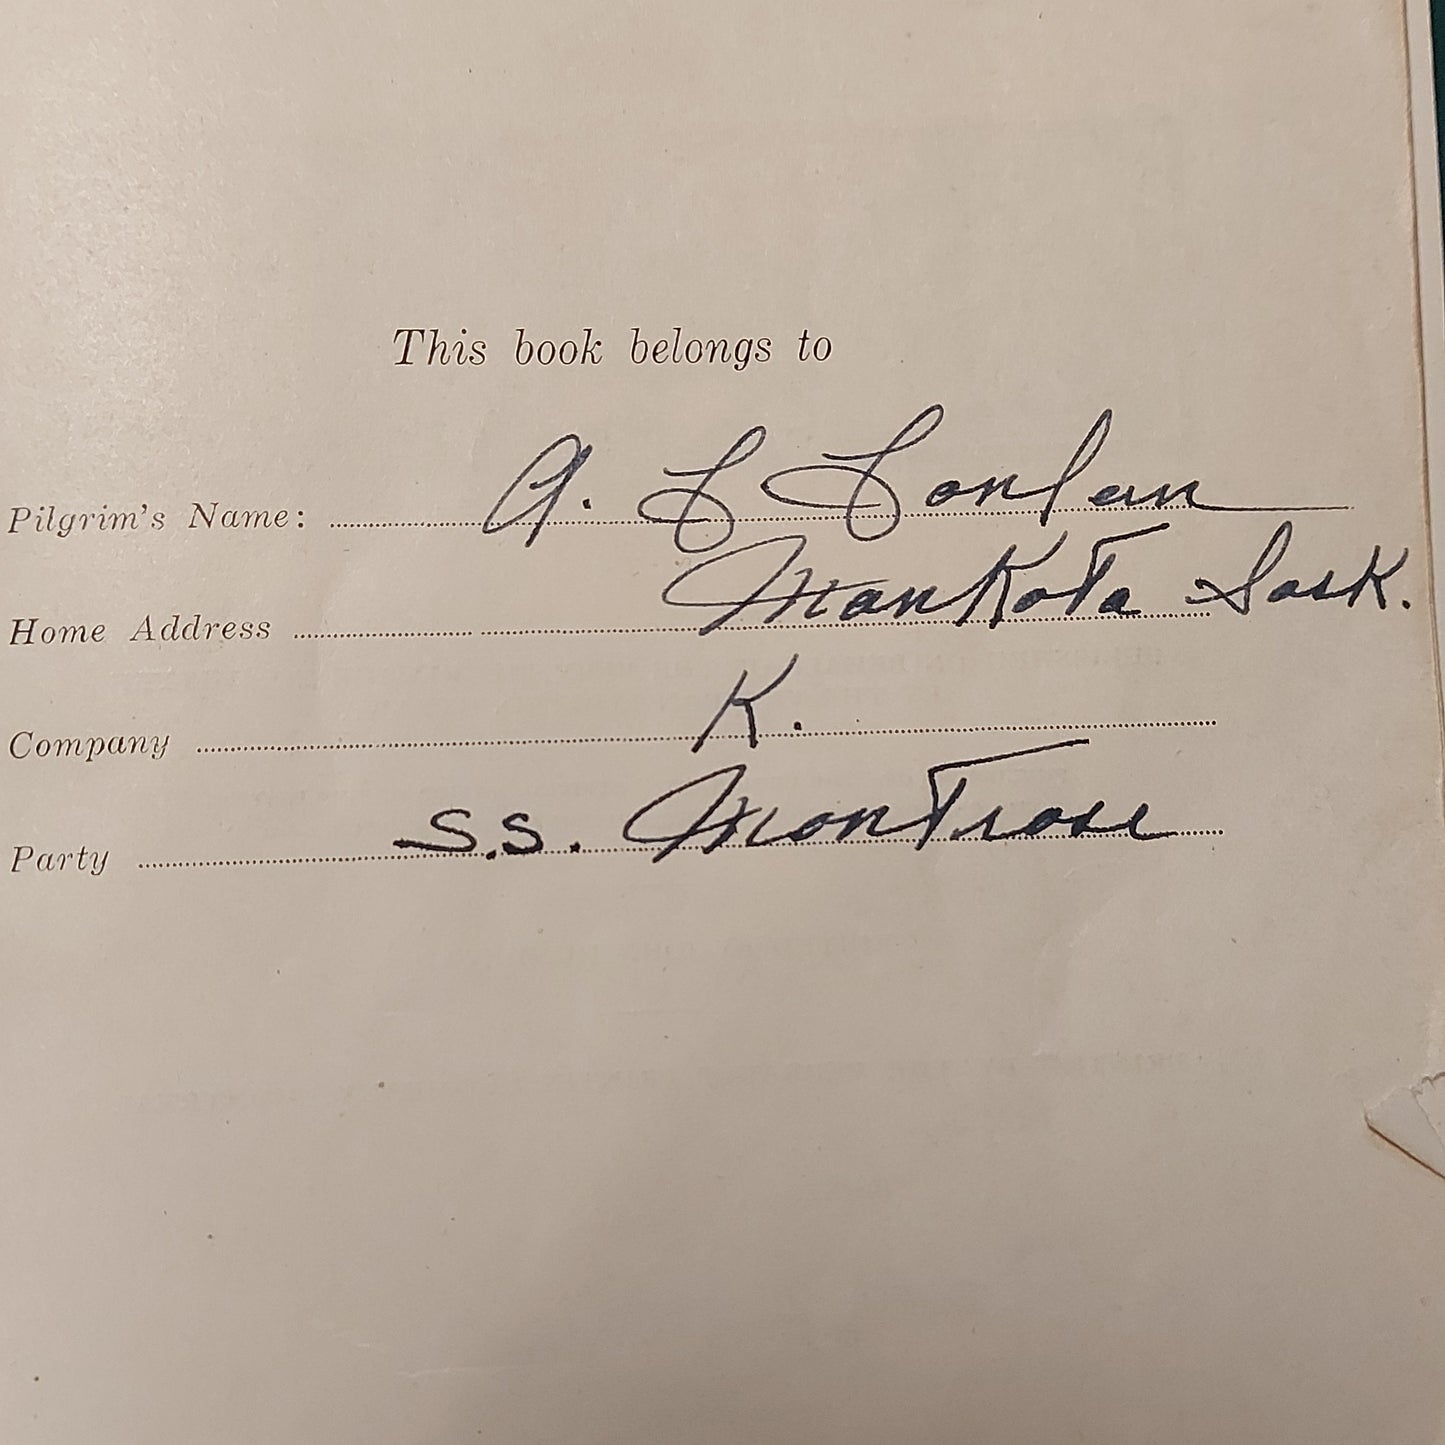 This book belongs to
Pilgrim's Name: A. L
Home Address Mankota Sask.
Company K.
Party S.S. Montrose